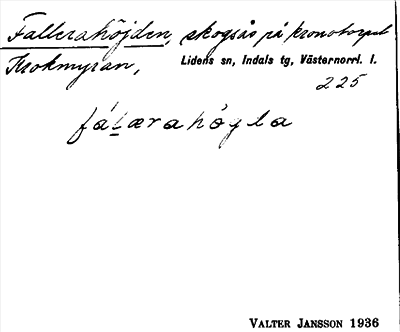 Fallerahöjden, skogsås på kronotorpet
Krokmyran, Lidens sn, Indals tg, Västernorrl. l.
225
fáḷærahǿgla
VALTER JANSSON 1936